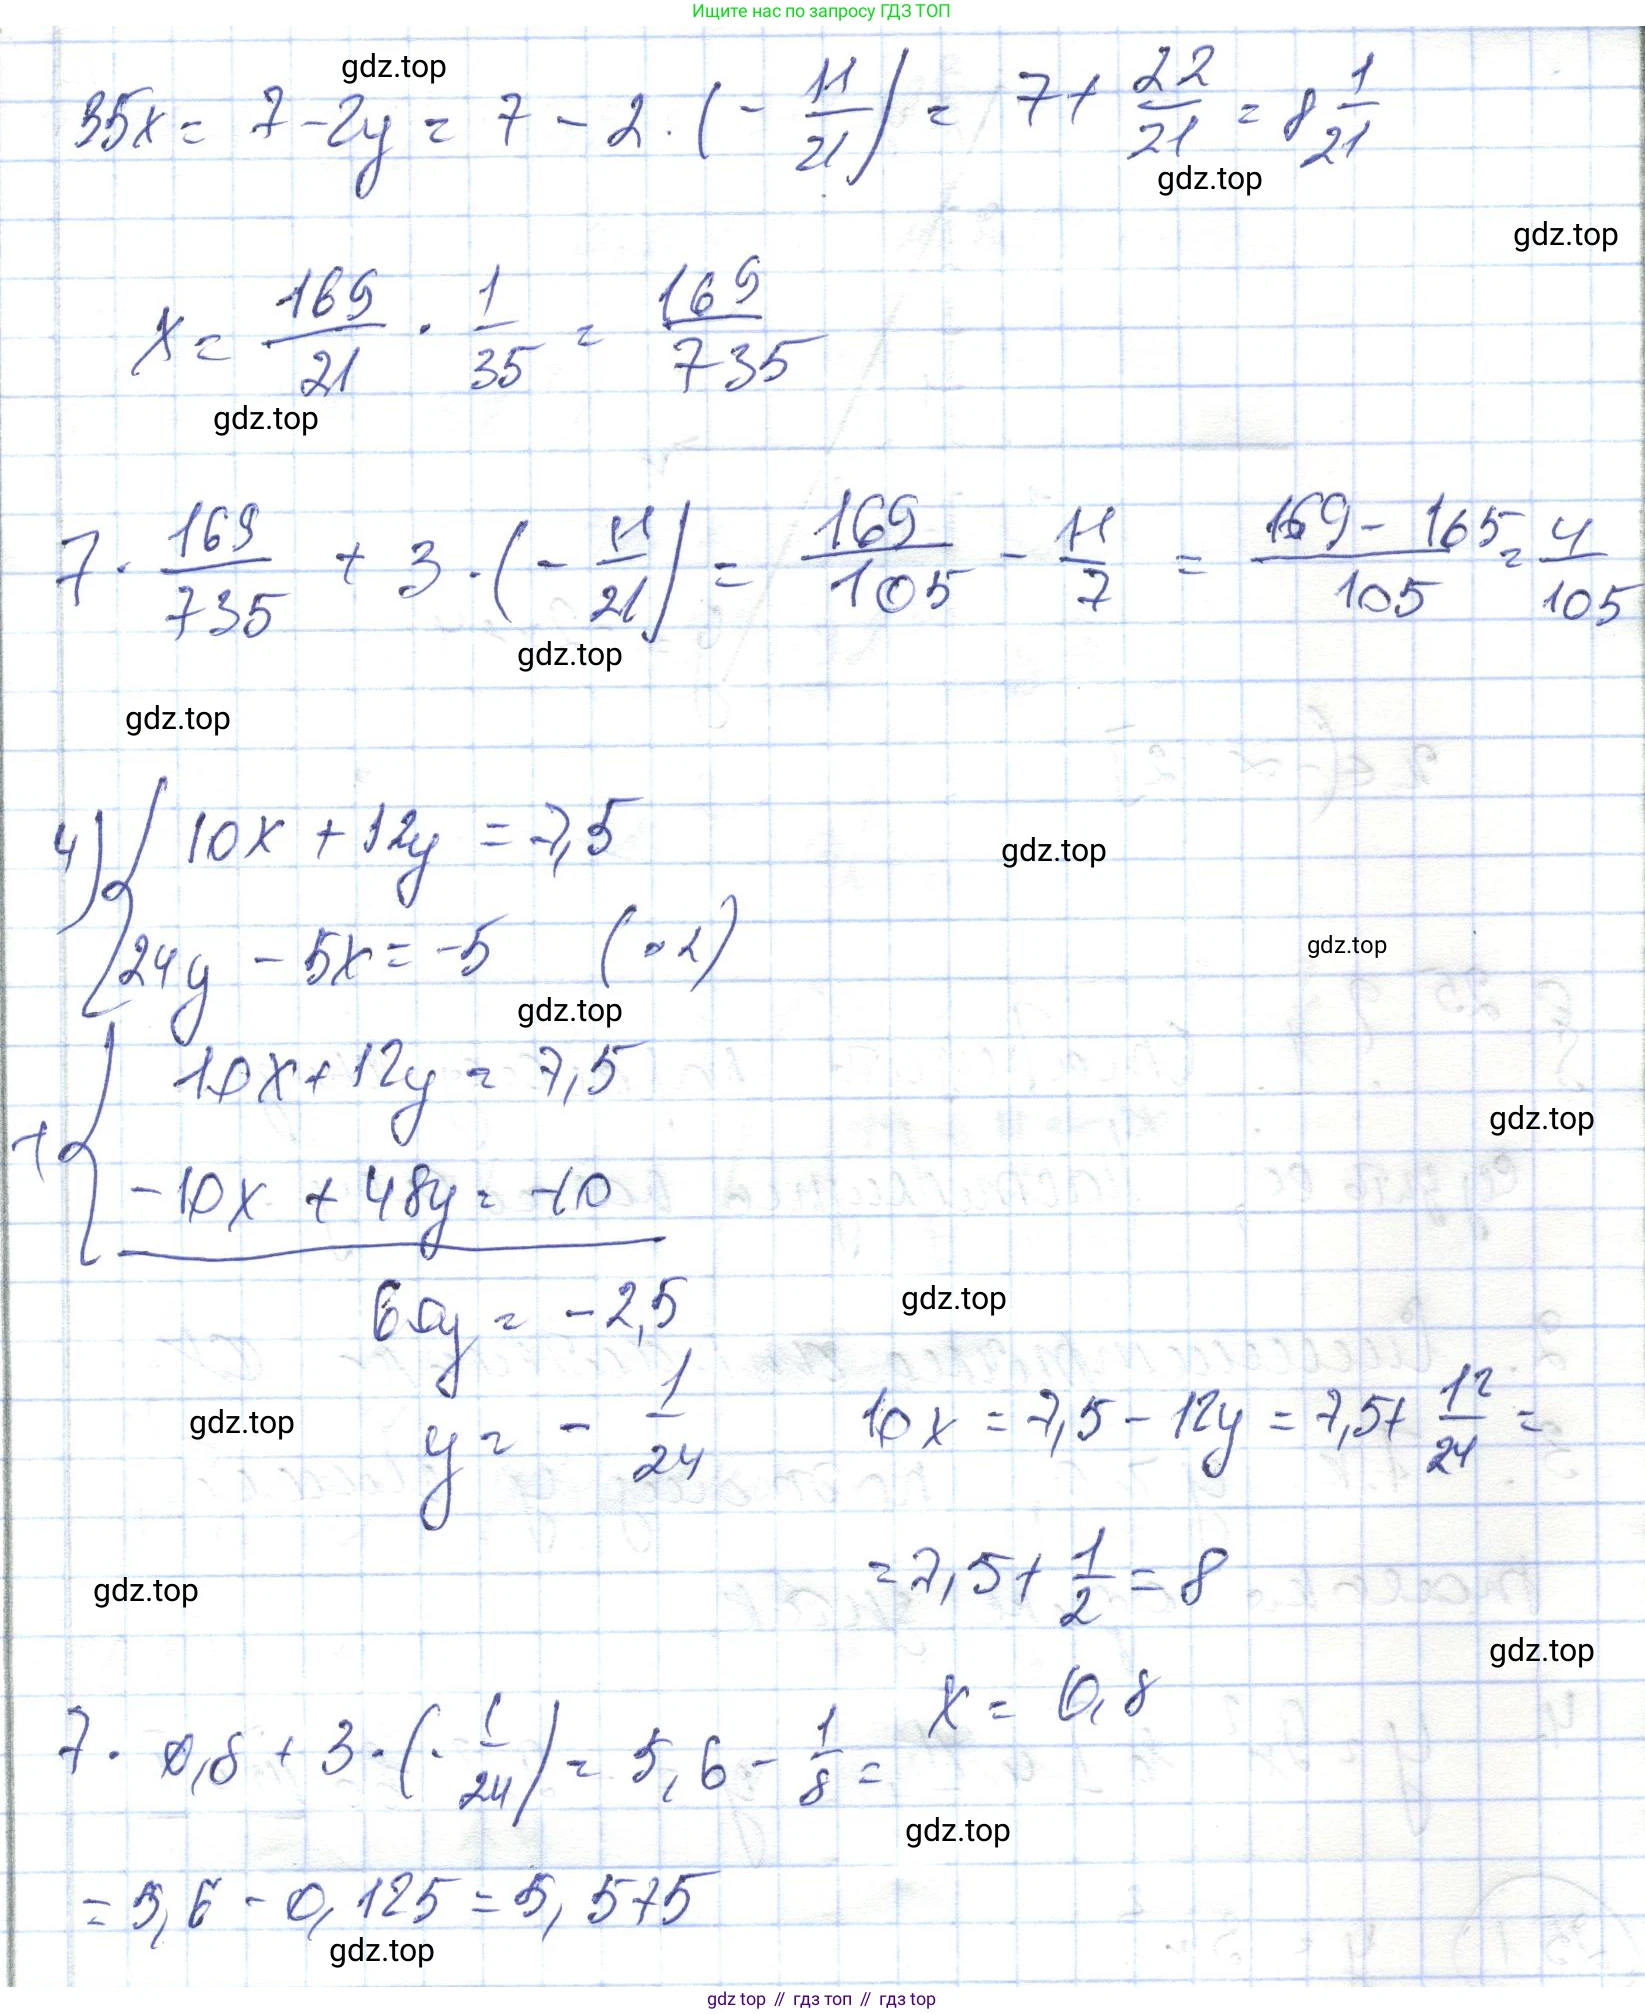 Ищите нас по запросу ГДЗ ТОП
gdz.top
35x = 7 - 2y = 7 - 2 · (- 11/21) = 7 + 22/21 = 8 1/21
gdz.top
gdz.top
x = 169/21 · 1/35 = 169/735
gdz.top
7 · 169/735 + 3 · (- 11/21) = 169/105 - 11/7 = 169 - 165/105 = 4/105
gdz.top
gdz.top
4) { 10x + 12y = 7,5
gdz.top
24y - 5x = -5 (· 2)
gdz.top
gdz.top
+ { 10x + 12y = 7,5
gdz.top
-10x + 48y = -10
60y = -2,5
gdz.top
y = - 1/24
10x = 7,5 - 12y = 7,5 + 12/24 =
gdz.top
= 7,5 + 1/2 = 8
gdz.top
gdz.top
x = 0,8
7 · 0,8 + 3 · (- 1/24) = 5,6 - 1/8 =
gdz.top
= 5,6 - 0,125 = 5,575
gdz.top
gdz top // гдз топ // gdz top